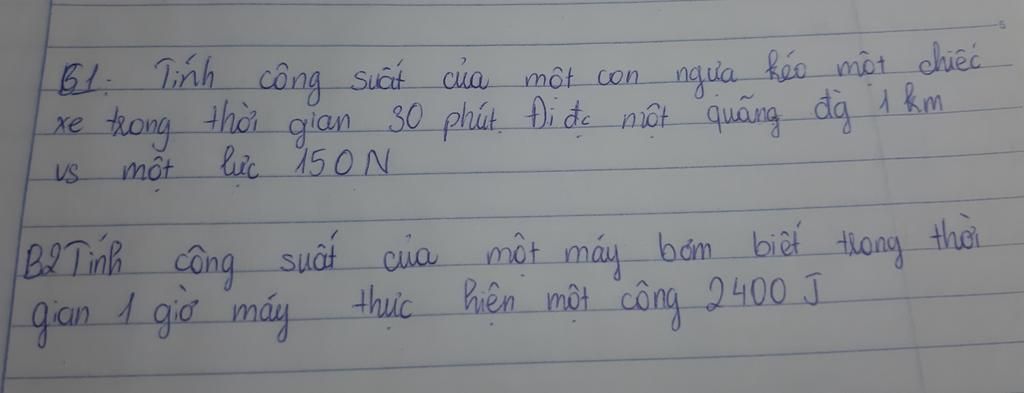 B1: Tính công suất của một con ngựa kéo một chiếc
xe trong thời gian 30 phút. Đi đc một quãng đg 1 km
vs một lực 150N
B2 Tính công suất của một máy bơm biết trong thời
gian 1 giờ máy thực hiện một công 2400 J